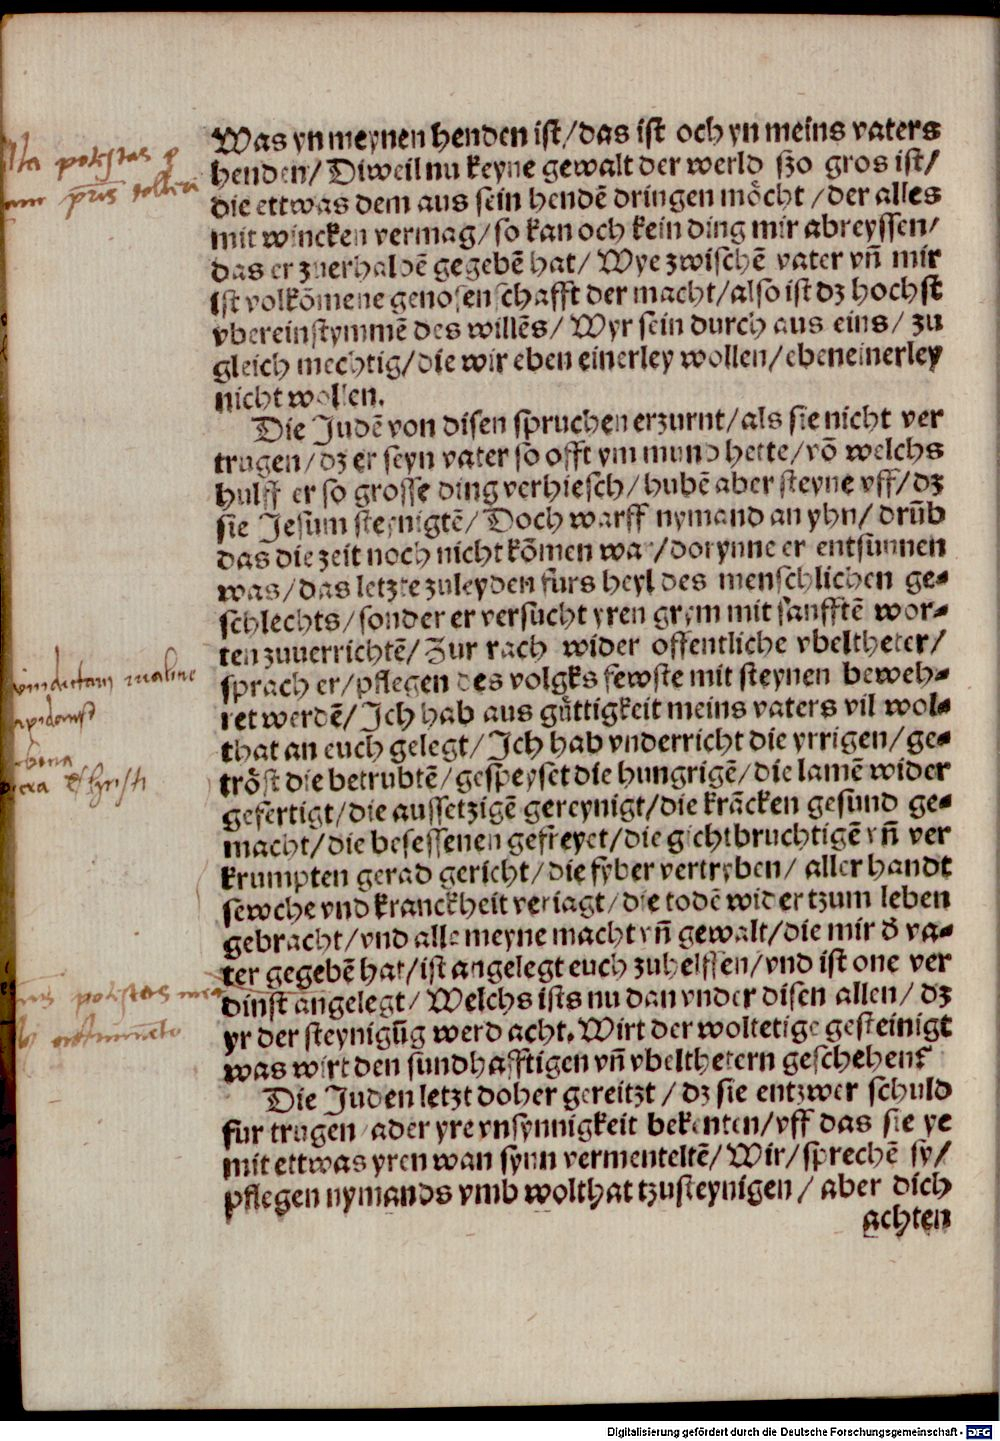 Was yn meynen henden ist/das ist och yn meins vaters
henden/ Diweil nu keyne gewalt der werld szo gros ist/
die ettwas dem aus sein hendē dringen möcht /der alles
mit wincken vermag/so kan och kein ding mir abreyssen/
das er zuerhaldē gegebē hat/ Wye zwischē vater vn̄ mir
ist volkōmene genosenschafft der macht/also ist dz hochst
vbereinstymmē des willēs/ Wyr sein durch aus eins/ zu
gleich mechtig/die wir eben einerley wollen/ebeneinerley
nicht wollen.
Die Judē von disen spruchen erzurnt/als sie nicht ver
trugen/dz er seyn vater so offt ym mund hette/vō welchs
hulff er so grosse ding verhiesch/hubē aber steyne vff/dz
sie Jesum steynigtē/Doch warff nymand an yhn/drūb
das die zeit noch nicht kōmen war/dorynne er entsunnen
was/das letzte zuleyden furs heyl des menschlichen ge-
schlechts/sonder er versucht yren grym mit sanfftē wor-
ten zuuerrichtē/Zur rach wider offentliche vbeltheter/
sprach er/pflegen des volgks fewste mit steynen beweh-
ret werdē/Ich hab aus güttigkeit meins vaters vil wol-
that an euch gelegt/Ich hab vnderricht die yrrigen/ge-
tröst die betrubtē/gespeyset die hungrigē/die lamē wider
gefertigt/die aussetzigē gereynigt/die krācken gesund ge-
macht/die besessenen gefreyet/die gichtbruchtigē vn̄ ver
krumpten gerad gericht/die fyber vertryben/ aller handt
sewche vnd kranckheit veriagt/die todē wider tzum leben
gebracht/vnd alle meyne macht vn̄ gewalt/die mir d̄ va-
ter gegebē hat/ist angelegt euch zuhelffen/vnd ist one ver
dinst angelegt/ Welchs ists nu dan vnder disen allen/ dz
yr der steynigūg werd acht. Wirt der woltetige gesteinigt
was wirt den sundhafftigen vn̄ vbelthetern geschehen?
Die Juden letzt doher gereitzt / dz sie entzwer schuld
fur trugen ader yre vnsynnigkeit bekenten/vff das sie ye
mit ettwas yren wan synn vermenteltē/Wir/sprechē sy/
pflegen nymands vmb wolthat tzusteynigen/ aber dich
achten
potestas
potestas
Christi
Digitalisierung gefördert durch die Deutsche Forschungsgemeinschaft - DFG